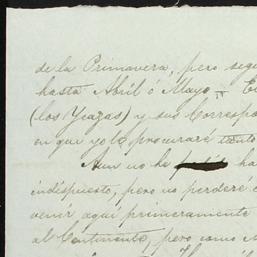 de la Primavera, pero segu
hasta Abril ó Mayo
(los Yeazas) y sus Correspo
en que yo lo procuraré
Aun no he ha
indispuesto, pero no perderé
venir aqui primeramente
al Continente, pero como